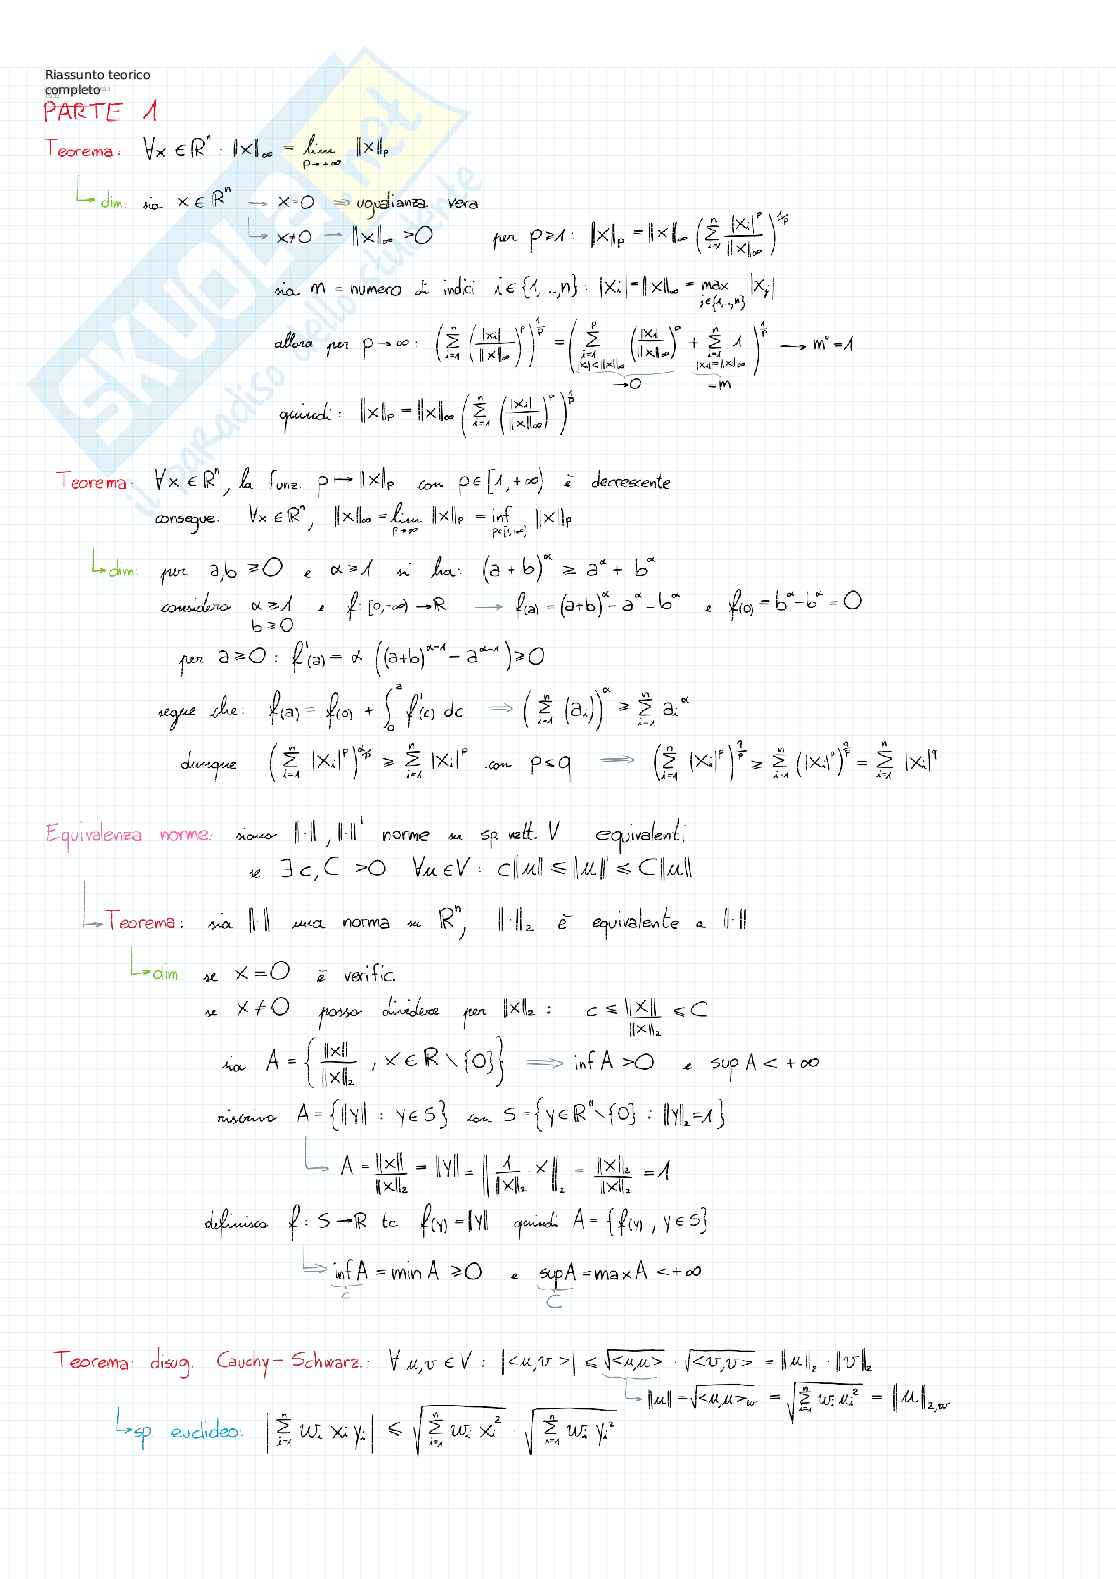 Riassunto teorico
completo
PARTE 1
Teorema: ∀x ∈ ℝⁿ : ‖x‖∞ = lim p→+∞ ‖x‖p
dim: sia x ∈ ℝⁿ → x=0 ⇒ uguaglianza vera
x≠0 → ‖x‖∞ >0 per p≥1: ‖x‖p = ‖x‖∞ (Σ i=1 n |xi|^p / ‖x‖∞)^1/p
sia m = numero di indici i∈{1,..,n} : |xi|=‖x‖∞ = max j∈{1,..,n} |xj|
allora per p→∞ : (Σ i=1 n (|xi|/‖x‖∞)^p)^1/p = (Σ i=1 |xi|<‖x‖∞ (|xi|/‖x‖∞)^p + Σ i=1 n |xi|=‖x‖∞ 1)^1/p → m°=1
→0 =m
quindi: ‖x‖p = ‖x‖∞ (Σ i=1 n (|xi|/‖x‖∞)^p)^1/p
Teorema: ∀x ∈ ℝⁿ, la funz. p→‖x‖p con p∈[1,+∞) è decrescente
consegue: ∀x∈ℝⁿ, ‖x‖∞ = lim p→∞ ‖x‖p = inf p∈[1,∞) ‖x‖p
dim: per a,b ≥0 e α≥1 si ha: (a+b)^α ≥ a^α + b^α
considero α≥1 e f: [0,-∞) → ℝ → f(a) = (a+b)^α - a^α - b^α e f(0) = b^α - b^α = 0
b≥0
per a≥0 : f'(a) = α ((a+b)^α-1 - a^α-1) ≥0
segue che: f(a) = f(0) + ∫0 a f'(c) dc ⇒ (Σ i=1 n (ai))^α ≥ Σ i=1 n ai^α
dunque (Σ i=1 n |xi|^p)^q/p ≥ Σ i=1 n |xi|^p con p≤q ⇒ (Σ i=1 n |xi|^p)^q/p ≥ Σ i=1 n (|xi|^p)^q/p = Σ i=1 n |xi|^q
Equivalenza norme: siano ‖·‖, ‖·‖' norme su sp. vett. V equivalenti
se ∃ c,C >0 ∀u∈V : c‖u‖ ≤ ‖u‖' ≤ C‖u‖
Teorema: sia ‖·‖ una norma su ℝⁿ, ‖·‖2 è equivalente a ‖·‖
dim se x=0 è verific.
se x≠0 posso dividere per ‖x‖2 : c ≤ ‖x‖/‖x‖2 ≤ C
sia A = {‖x‖/‖x‖2 , x∈ℝ\{0}} ⇒ inf A >0 e sup A < +∞
riscrivo A = {‖y‖ : y∈S} con S = {y∈ℝⁿ\{0} : ‖y‖2=1}
A = ‖x‖/‖x‖2 = ‖y‖ = ‖1/‖x‖2 · x‖2 = ‖x‖2/‖x‖2 = 1
definisco f : S→ℝ tc f(y) = ‖y‖ quindi A = {f(y), y∈S}
⇒ inf A = min A ≥0 e sup A = max A < +∞
c C
Teorema: disug. Cauchy-Schwarz: ∀u,v∈V : |<u,v>| ≤ √<u,u> · √<v,v> = ‖u‖2 · ‖v‖2
‖u‖ = √<u,u>w = √Σ i=1 n wi ui² = ‖u‖2,w
sp euclideo: |Σ i=1 n wi xi yi| ≤ √Σ i=1 n wi xi² · √Σ i=1 n wi yi²
SKUOLA.net
il paradiso dello studente